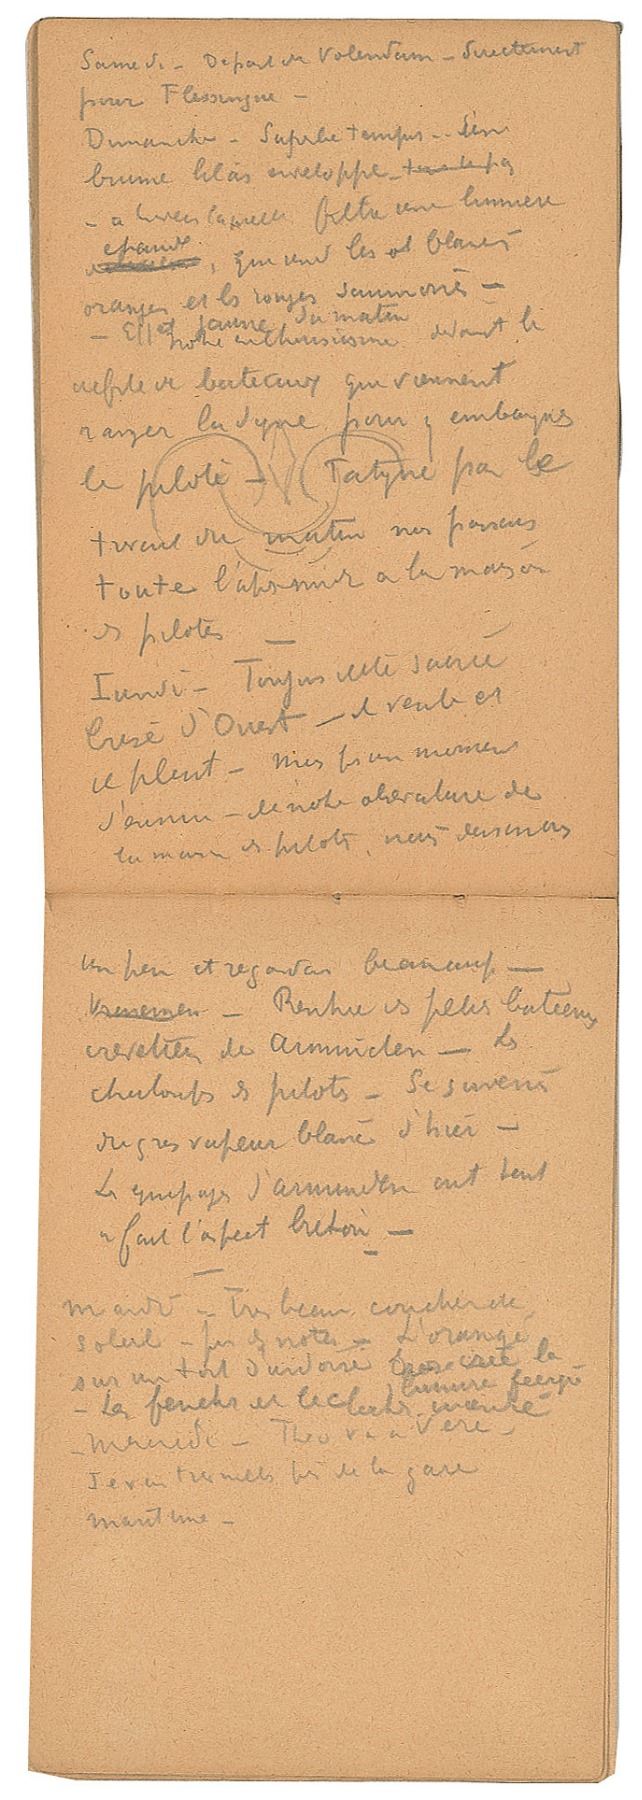 Samedi - Départ de Volendam - directement
pour Flessingue -
Dimanche - Superbe temps - Une
brume lilas enveloppe tout le
- à travers laquelle filtre une lumière
chaude, qui rend les blancs
oranges et les rouges saumonés -
- Effet jaune du matin
notre enthousiasme devant le
défilé de bateaux qui viennent
ranger la digue pour y embarquer
le pilote - Fatigué par le
travail du matin nous passons
toute l'après midi à la maison
des pilotes -
Lundi - Toujours cette sacrée
brise d'Ouest - il vente et
il pleut - mais pas un moment
d'ennui - de notre observatoire de
la maison des pilotes, nous dessinons
un peu et regardons beaucoup -
- Rentrée des petits bateaux
crevettiers de Arnemuiden - Les
chaloupes des pilotes - Se souvenir
du gros vapeur blanc d'hier -
Les équipages d'Arnemuiden ont tout
à fait l'aspect breton -
-
Mardi - Très beau coucher de
soleil - pris des notes - L'orangé
sur un toit d'ardoise crée la
lumière féerique
- Les fenêtres et le clocher
- Mercredi - Théo va à Vere -
Je vais travailler près de la gare
maritime -